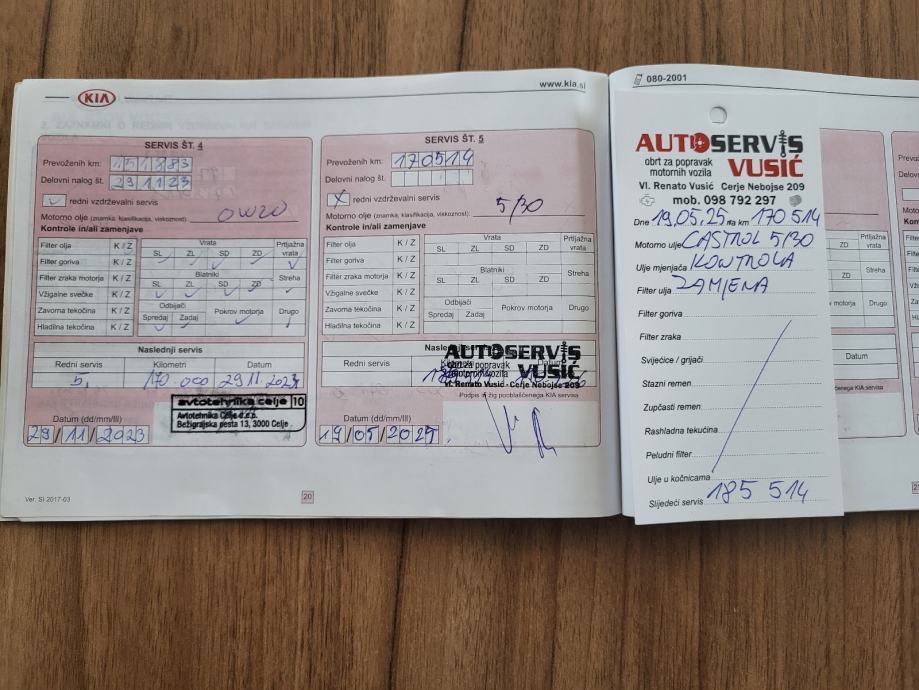 KIA
www.kia.si
SERVIS ŠT. 4
Prevoženih km: 151883
Delovni nalog št. 291123
redni vzdrževalni servis
Motorno olje (znamka, klasifikacija, viskoznost) 0W20
Kontrole in/ali zamenjave
Filter olja K / Ž
Filter goriva K / Ž
Filter zraka motorja K / Ž
Vžigalne svečke K / Ž
Zavorna tekočina K / Ž
Hladilna tekočina K / Ž
Vrata Prtljažna vrata
SL ZL SD ZD
Blatniki Streha
SL ZL SD ZD
Odbijači Pokrov motorja Drugo
Spredaj Zadaj
Naslednji servis
Redni servis Kilometri Datum
5. 170 000 29 11. 2024
avtotehnika celje 10
Avtotehnika Celje d.o.o.
Bežigrajska cesta 13, 3000 Celje
Datum (dd/mm/llll)
29/11/2023
Ver. SI 2017-03
20
SERVIS ŠT. 5
Prevoženih km: 170514
Delovni nalog št.
X redni vzdrževalni servis
Motorno olje (znamka, klasifikacija, viskoznost) 5/30
Kontrole in/ali zamenjave
Filter olja K / Ž
Filter goriva K / Ž
Filter zraka motorja K / Ž
Vžigalne svečke K / Ž
Zavorna tekočina K / Ž
Hladilna tekočina K / Ž
Vrata Prtljažna vrata
SL ZL SD ZD
Blatniki Streha
SL ZL SD ZD
Odbijači Pokrov motorja Drugo
Spredaj Zadaj
Redni servis
AUTOSERVIS
obrt za popravak
motornih vozila VUSIĆ
Vl. Renato Vusić - Cerje Nebojse 209
Podpis in žig pooblaščenega KIA servisa
Datum (dd/mm/llll)
19/05/2025.
080-2001
AUTOSERVIS
obrt za popravak
motornih vozila VUSIĆ
Vl. Renato Vusić Cerje Nebojse 209
mob. 098 792 297
Dne 19.05.25 na km 170 514
Motorno ulje CASTROL 5/30
Ulje mjenjača KONTROLA
Filter ulja ZAMJENA
Filter goriva
Filter zraka
Svijećice / grijači
Stazni remen
Zupčasti remen
Rashladna tekućina
Peludni filter
Ulje u kočnicama
Slijedeći servis 185 514
Drugo